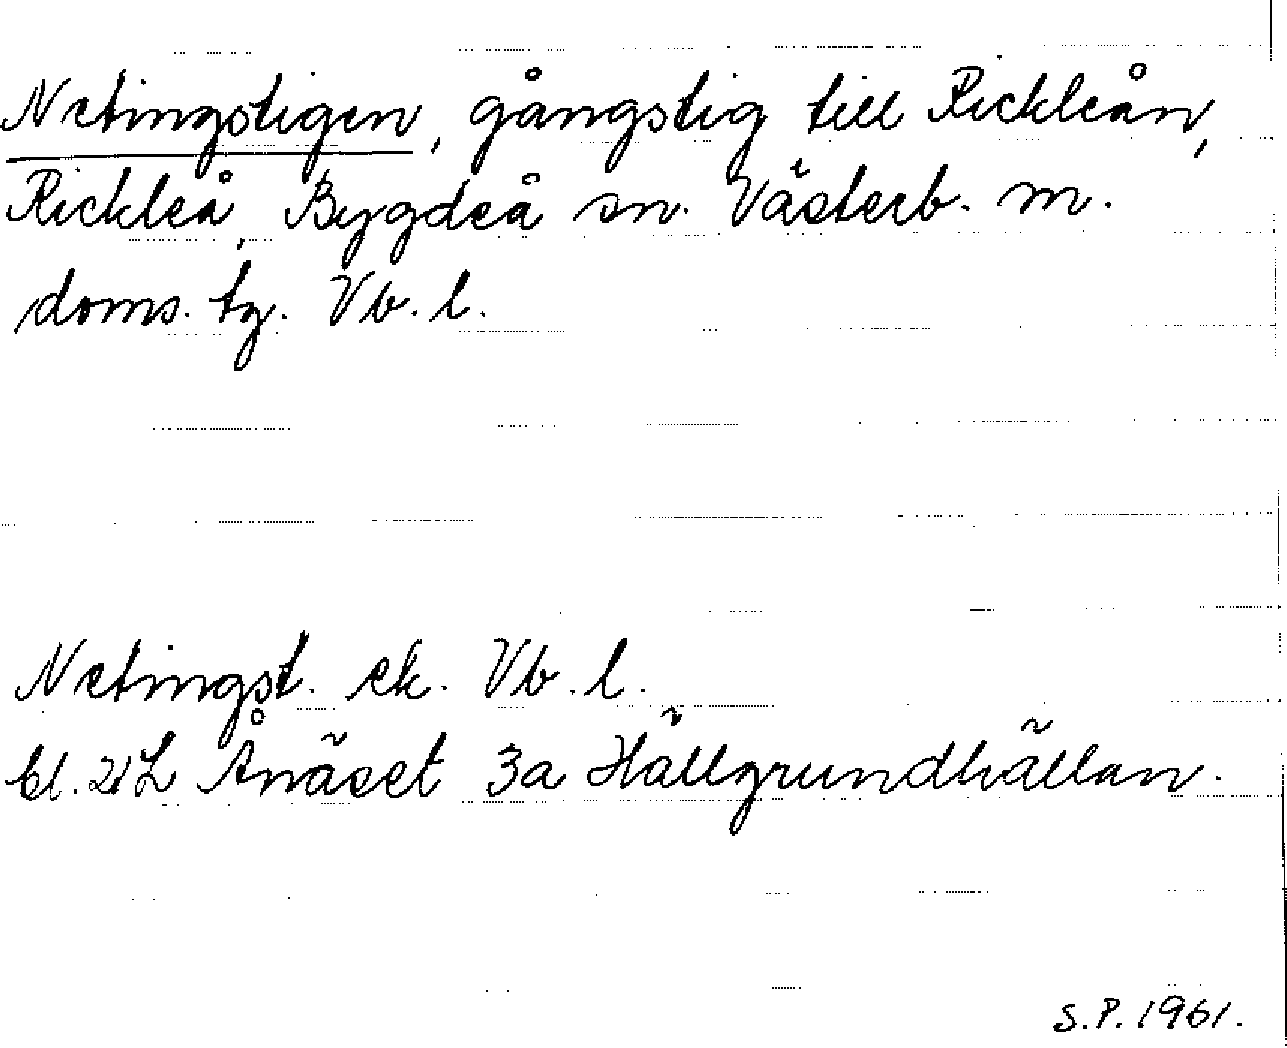 Netingstigen, gångstig till Rickleån,
Rickleå, Bygdeå sn. Västerb. m.
doms. tg. Vb. l.
Netingst. ek. Vb. l.
bl. 21 L Ånäset 3a Hällgrundhällan.
S.P. 1961.